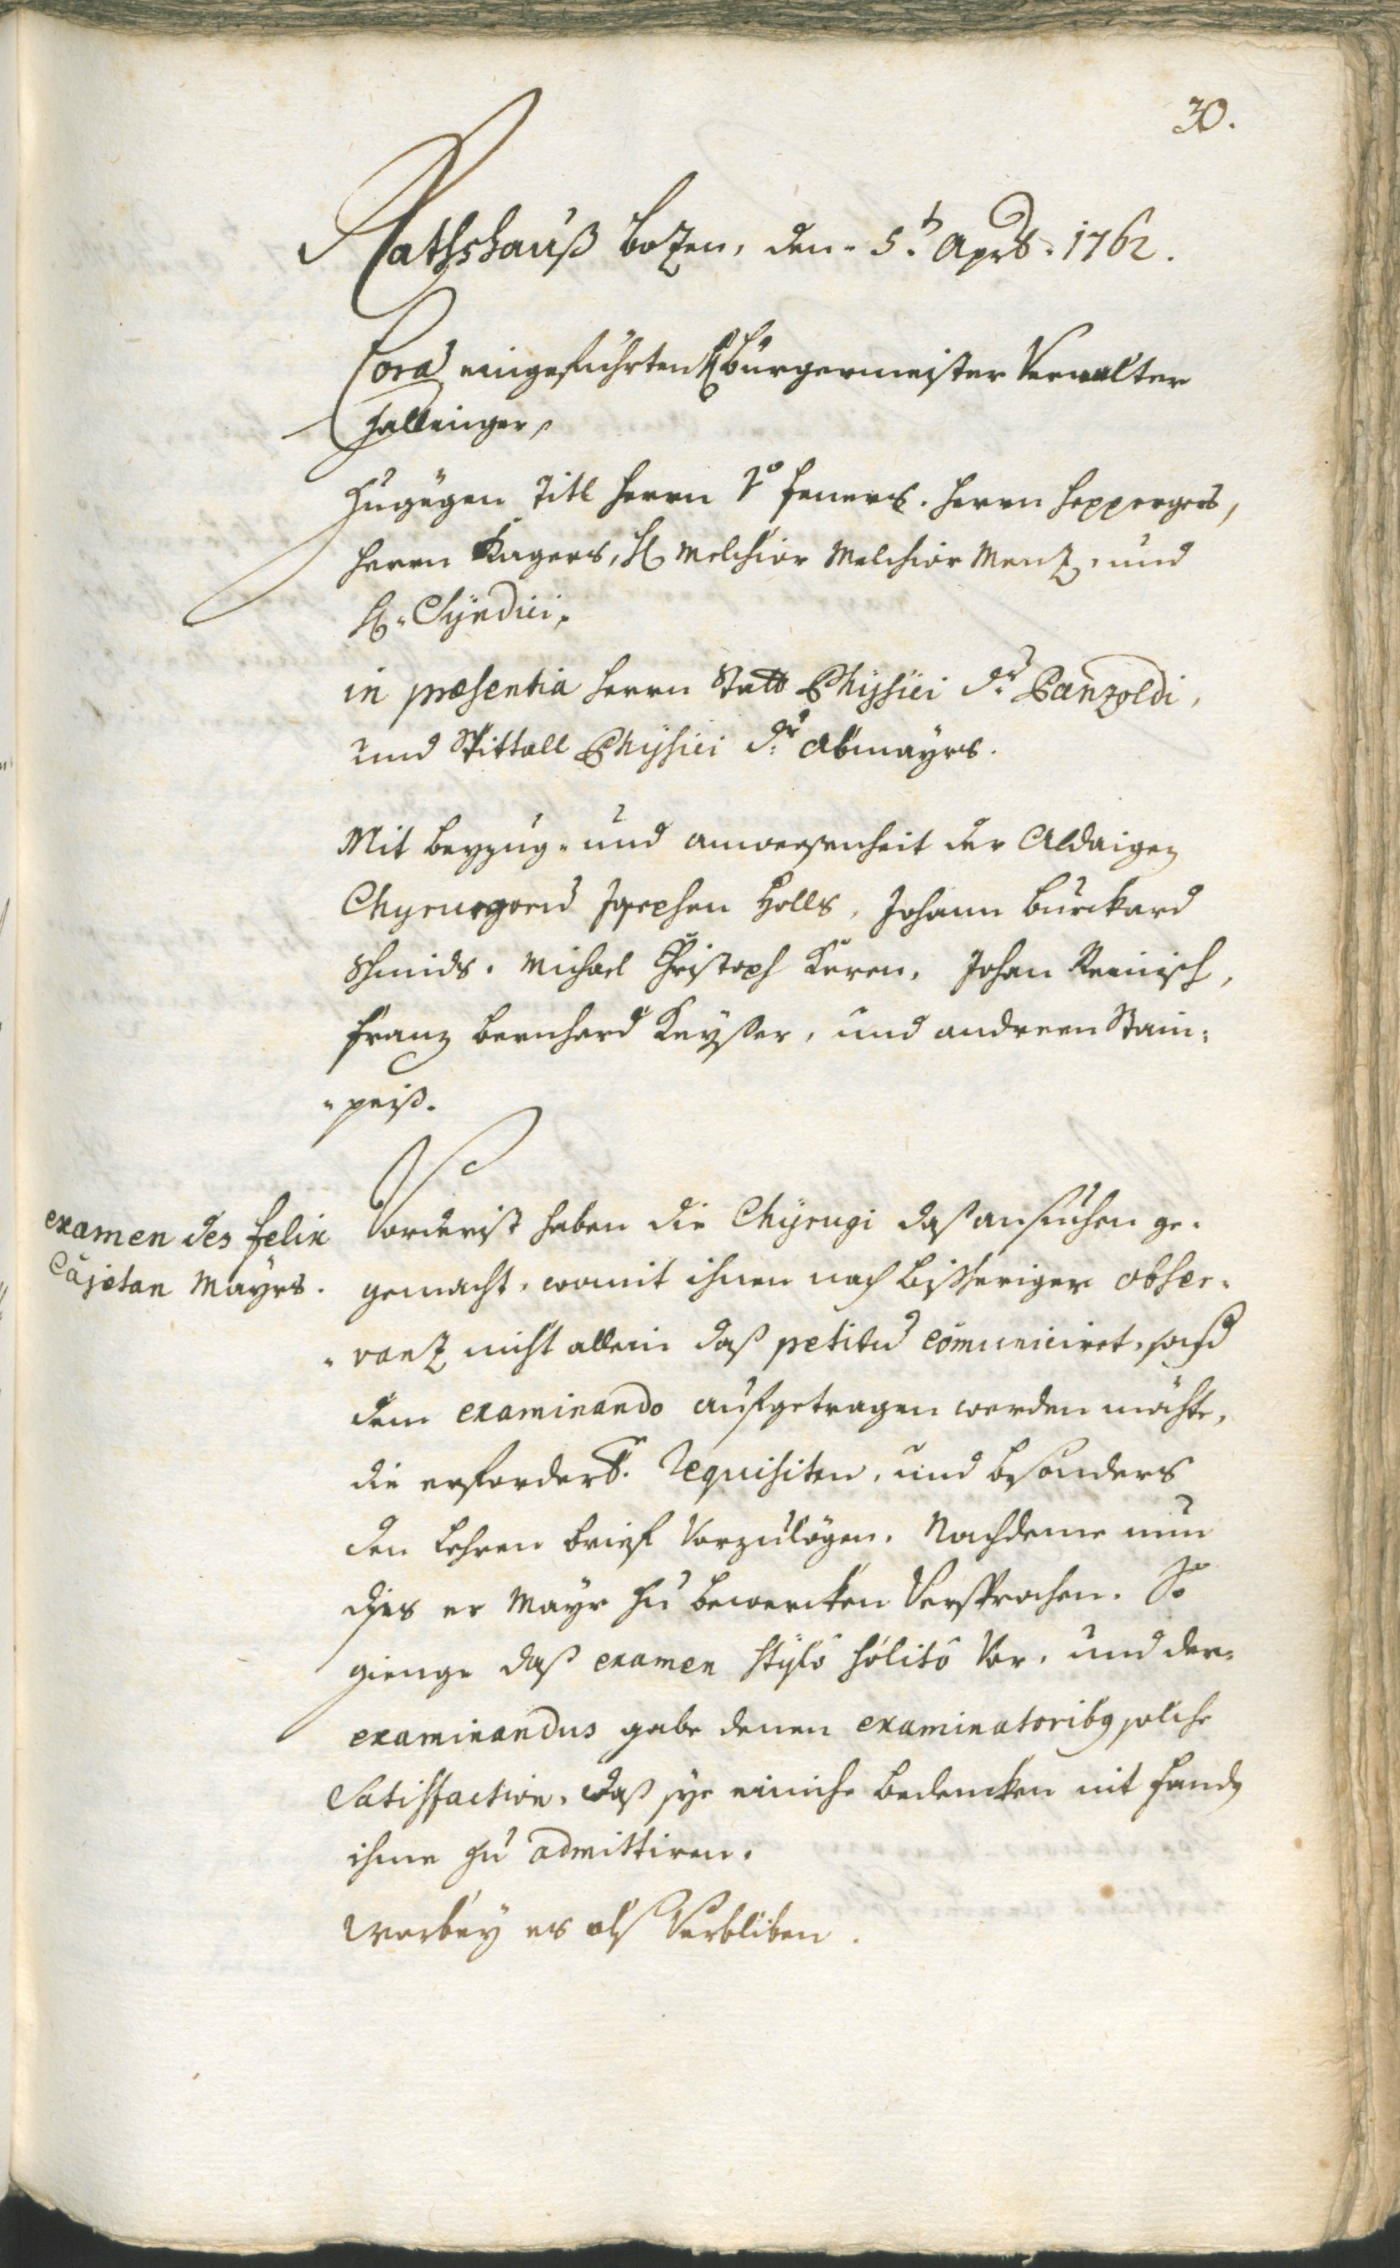 30.
Rathshauß bozen, den 5.t Aprs. 1762.
Corã eingeführten H bürgermeister Verwalter
Hallinger,
Zugegen Titl Herrn Herrn Hepperger,
Herrn Kagers, H Melchior Melchior Menz, und
H. Syndici.
in præsentia Herrn Statt Physici Dr. Panzoldi,
und Spittall Physici Dr. Abmayrs.
Mit beyzug- und anwesenheit der Aldaigen
Chyrurgorũ Josephen Holls, Johann burckard
Schmids, Michael Christoph Kuren, Johan Reinisch,
Franz bernhard Keyser, und andreen Stain=
=peiß.
examen des felix
Cajetan Mayrs.
Vorderist haben die Chyrugi daß ansuchen ge-
gemacht, womit ihnen nach bißheriger obser-
=vanz nicht allein daß petitũ com̃uniciret, sond
dem examinando aufgetragen werden möchte,
die erforderl. Requisiten, und besonders
den Lehren brief Vorzulögen. Nachdeme nun
dises er Mayr zu bewercken Versprochen. So
gienge daß examen stylô sôlitô Vor, und der-
examinandus gabe denen examinatoribq solche
Satisfaction, daß sye einiche bedencken nit fandn
ihme zu admittiren.
Worbey es als Verbliben.